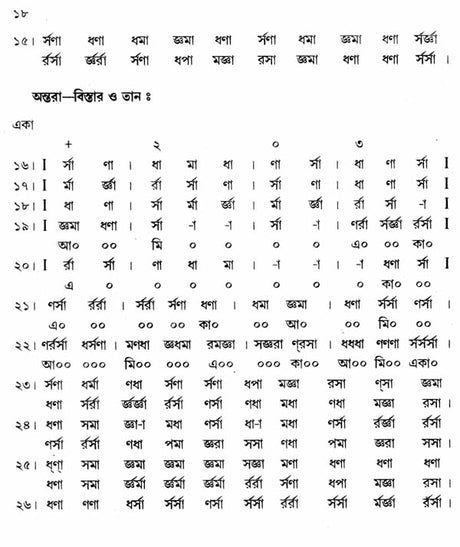 ১৮
১৫। র্সণা ধণা ধমা জ্ঞমা ধণা র্সণা ধমা জ্ঞমা ধণা র্সর্জ্ঞা
র্রর্সা র্জ্ঞর্রা র্সণা ধপা মজ্ঞা রসা জ্ঞমা ধণা ধণা র্সর্সা ।
অন্তরা—বিস্তার ও তান ঃ
একা
+ ২ ০ ৩
১৬। I র্সা ণা । ধা মা ধা । ণা র্সা । ধা ণা র্সা I
১৭। I র্মা র্জ্ঞা । র্রা র্সা ণা । র্সা ণা । ধা ণা র্সা I
১৮। I ধা ণা । র্সা র্মা র্জ্ঞা । র্মা র্জ্ঞা । র্রা র্সা -া I
১৯। I জ্ঞমা ধণা । র্সা -া -া । র্সা -া । ণর্রা র্সর্জ্ঞা র্রর্সা I
আ০ ০০ মি ০ ০ ০ ০ এ০ ০০ কা০
২০। I র্রা র্সা । ণা ধা মা । -া -া । -া ধণা র্সা I
এ ০ ০ ০ ০ ০ ০ ০ কা০ ০০
২১। ণর্সা র্রর্রা । র্সর্রা র্সণা ধণা । ধমা জ্ঞমা । ধণা র্সর্সা ণর্সা ।
এ০ ০০ ০০ ০০ কা০ ০০ আ০ ০০ মি০ ০০
২২। ণর্রর্সা ধর্সণা । মণধা জ্ঞধমা রমজ্ঞা । সজ্ঞরা ণ্‌রসা । ধধধা ণণণা র্সর্সর্সা ।
আ০০ ০০০ মি০০ ০০০ এ০০ ০০০ কা০০ আ০০ মি০০ একা০
২৩। র্সণা ধর্মা ণধা র্সণা র্সণা ধপা মজ্ঞা রসা ণ্‌সা জ্ঞমা
ধণা র্সর্রা র্জ্ঞর্জ্ঞা র্রর্সা ণর্সা ণধা মধা ণধা মজ্ঞা রসা ।
২৪। ধণা সমা জ্ঞা-া মধা ণর্সা ধা-া মধা ণর্সা র্রর্জ্ঞা র্রর্সা
ণর্সা র্রর্সা ণধা পমা জ্ঞরা সসা ণধা পমা জ্ঞরা সসা ।
২৫। ধ্‌ণ্‌া সমা জ্ঞমা জ্ঞমা জ্ঞমা সজ্ঞা মণা ধণা ধণা ধণা
ধণা সমা র্জ্ঞর্মা র্জ্ঞর্মা র্জ্ঞর্মা র্রর্সা র্সণা ধপা মজ্ঞা রসা ।
২৬। ধণা ণণা ধর্সা র্সর্সা ণর্সা র্সর্রা র্রর্রা র্সর্সা র্মর্জ্ঞা র্রর্সা ।